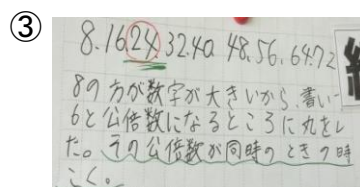 ③
8.16.24.32.40.48.56.64.72
8の方が数字が大きいから、書い
6と公倍数になるところに丸をし
た。その公倍数が同時のときの時
こく。